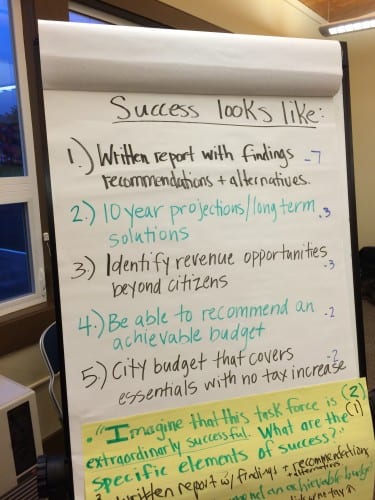 Success looks like:
1.) Written report with findings -7
recommendations + alternatives.
2.) 10 year projections/long term -3
solutions
3.) Identify revenue opportunities -3
beyond citizens
4.) Be able to recommend an -2
achievable budget
5.) City budget that covers -2
essentials with no tax increase
• "Imagine that this task force is (2)
extraordinarily successful. What are the (1)
specific elements of success?"
written report w/ findings + recommendations
alternatives
an achievable budget